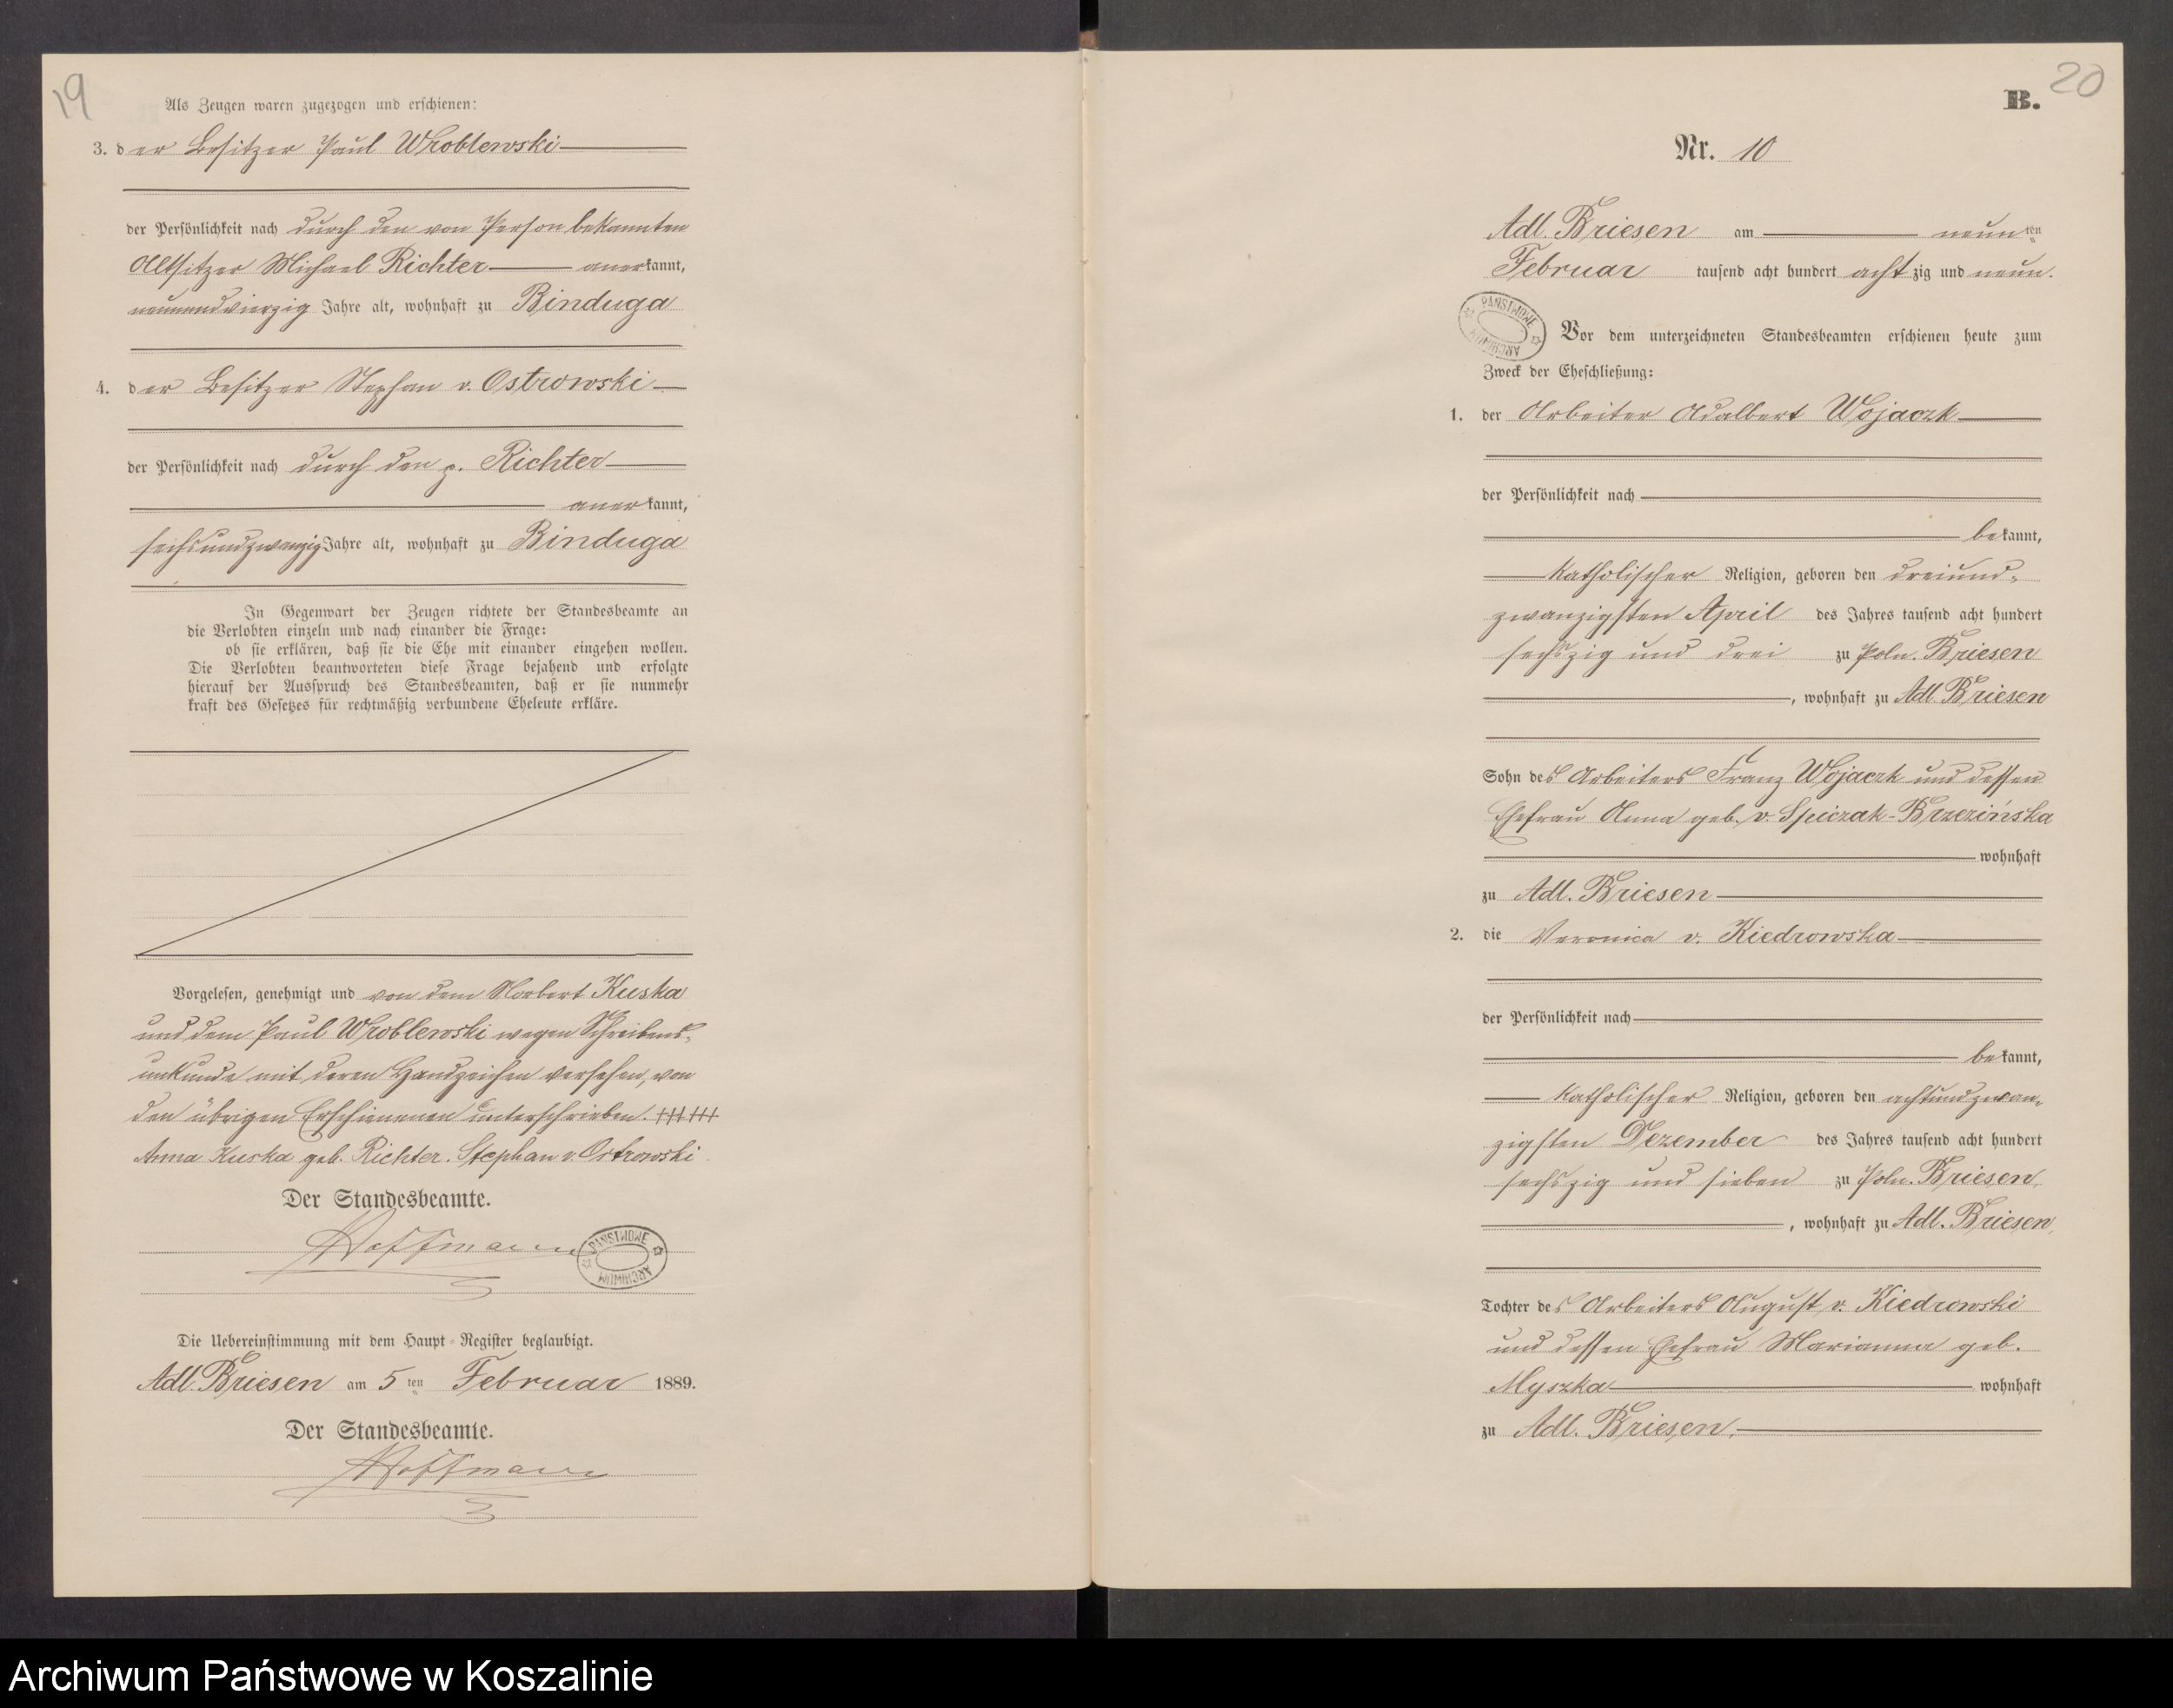 19
Als Zeugen waren zugezogen und erschienen:
3. der Besitzer Paul Wroblewski
der Persönlichkeit nach durch den von Person bekannten
Altsitzer Michael Richter anerkannt,
neunundvierzig Jahre alt, wohnhaft zu Binduga
4. der Besitzer Stephan v. Ostrowski
der Persönlichkeit nach durch den p. Richter
anerkannt,
sechsundzwanzig Jahre alt, wohnhaft zu Binduga
In Gegenwart der Zeugen richtete der Standesbeamte an
die Verlobten einzeln und nach einander die Frage:
ob sie erklären, daß sie die Ehe mit einander eingehen wollen.
Die Verlobten beantworteten diese Frage bejahend und erfolgte
hierauf der Ausspruch des Standesbeamten, daß er sie nunmehr
kraft des Gesetzes für rechtmäßig verbundene Eheleute erkläre.
Vorgelesen, genehmigt und von dem Norbert Kuska
und dem Paul Wroblewski wegen Schreibens-
unkunde mit deren Handzeichen versehen, von
den übrigen Erschienenen unterschrieben. +++ +++
Anna Kuska geb. Richter. Stephan v. Ostrowski.
Der Standesbeamte.
Hoffmann
PAŃSTWOWE ARCHIWUM
Die Uebereinstimmung mit dem Haupt-Register beglaubigt.
Adl. Briesen am 5ten Februar 1889.
Der Standesbeamte.
Hoffmann
20
B.
Nr. 10
Adl. Briesen am neunten
Februar tausend acht hundert achtzig und neun.
PAŃSTWOWE ARCHIWUM
Vor dem unterzeichneten Standesbeamten erschienen heute zum
Zweck der Eheschließung:
1. der Arbeiter Adalbert Wojaczk
der Persönlichkeit nach
bekannt,
katholischer Religion, geboren den dreiund-
zwanzigsten April des Jahres tausend acht hundert
sechszig und drei zu Poln. Briesen
, wohnhaft zu Adl. Briesen
Sohn des Arbeiters Franz Wojaczk und dessen
Ehefrau Anna geb. v. Spiczak-Brzezińska
wohnhaft
zu Adl. Briesen
2. die Veronica v. Kiedrowska
der Persönlichkeit nach
bekannt,
katholischer Religion, geboren den achtundzwan-
zigsten Dezember des Jahres tausend acht hundert
sechszig und sieben zu Poln. Briesen,
, wohnhaft zu Adl. Briesen,
Tochter des Arbeiters August v. Kiedrowski
und dessen Ehefrau Marianna geb.
Myszka wohnhaft
zu Adl. Briesen.
Archiwum Państwowe w Koszalinie